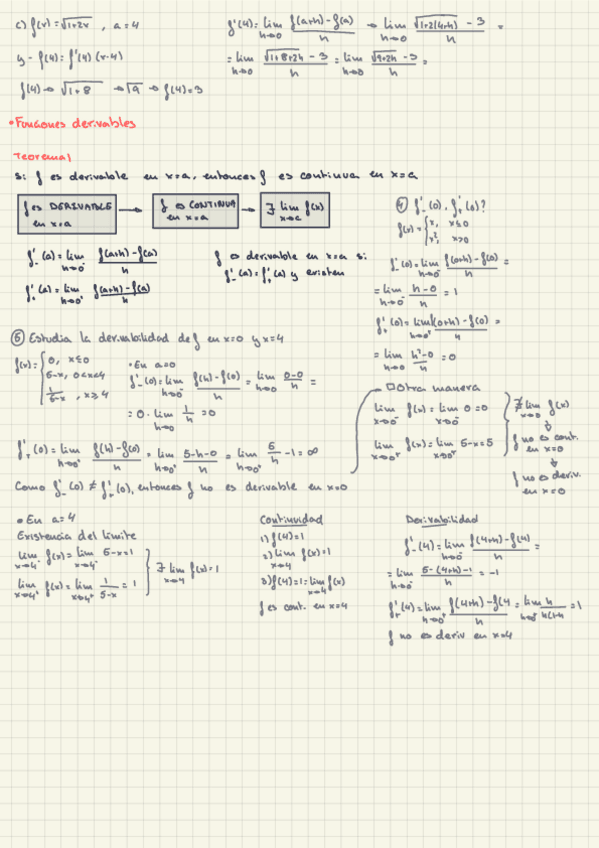 c) f(x) = √1+2x , a=4
f'(4) = lim h→0 f(a+h)-f(a) / h → lim h→0 √1+2(4+h) - 3 / h =
y - f(4) = f'(4) (x-4)
= lim h→0 √1+8+2h - 3 / h = lim h→0 √9+2h - 3 / h =
f(4) → √1+8 → √9 → f(4)=3
• Funciones derivables
Teorema1
Si f es derivable en x=a, entonces f es continua en x=a
f es DERIVABLE en x=a → f es CONTINUA en x=a → ∃ lim x→c f(x)
f'₋(a) = lim h→0⁻ f(a+h)-f(a) / h
f'₊(a) = lim h→0⁺ f(a+h)-f(a) / h
f es derivable en x=a si:
f'₋(a) = f'₊(a) y existen
f'₋(0), f'₊(0)?
f(x) = { x, x≤0
x², x>0
f'₋(0) = lim h→0⁻ f(0+h)-f(0) / h =
= lim h→0⁻ h-0 / h = 1
f'₊(0) = lim h→0⁺ f(0+h)-f(0) / h =
= lim h→0⁺ h²-0 / h = 0
⑤ Estudia la derivabilidad de f en x=0 y x=4
f(x) = { 0, x≤0
5-x, 0<x<4
1/5-x , x≥4
• En a=0
f'₋(0) = lim h→0⁻ f(h)-f(0) / h = lim h→0⁻ 0-0 / h =
= 0 · lim h→0 1/h = 0
f'₊(0) = lim h→0⁺ f(h)-f(0) / h = lim h→0⁺ 5-h-0 / h = lim h→0⁺ 5/h - 1 = ∞
Como f'₋(0) ≠ f'₊(0), entonces f no es derivable en x=0
→ Otra manera
lim x→0⁻ f(x) = lim x→0⁻ 0 = 0
lim x→0⁺ f(x) = lim x→0⁺ 5-x = 5
∄ lim x→0 f(x)
↓
f no es cont.
en x=0
↓
f no es deriv.
en x=0
• En a=4
Existencia del límite
lim x→4⁻ f(x) = lim x→4⁻ 5-x = 1
lim x→4⁺ f(x) = lim x→4⁺ 1/5-x = 1
∃ lim x→4 f(x) = 1
Continuidad
1) f(4)=1
2) lim x→4 f(x)=1
3) f(4)=1= lim x→4 f(x)
f es cont. en x=4
Derivabilidad
f'₋(4) = lim h→0⁻ f(4+h)-f(4) / h =
= lim h→0⁻ 5-(4+h)-1 / h = -1
f'₊(4) = lim h→0⁺ f(4+h)-f(4 / h = lim h→0⁺ h / h(1-h = 1
f no es deriv en x=4